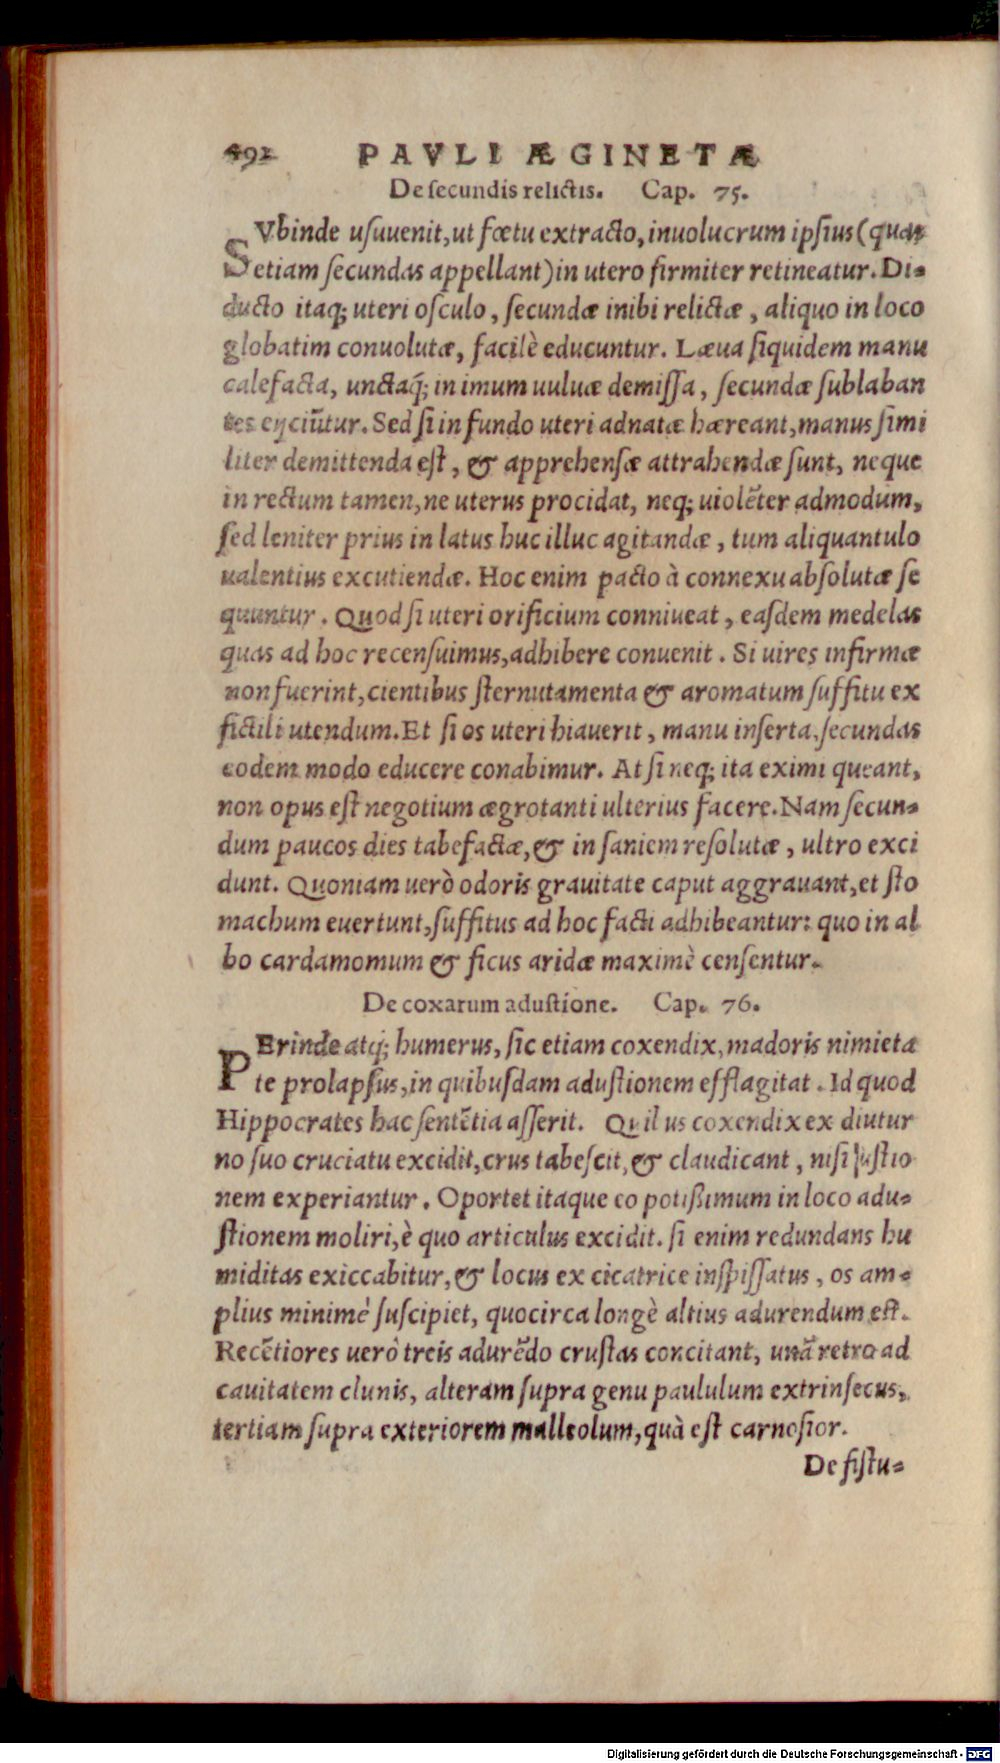 492 PAVLI ÆGINETÆ
De secundis relictis. Cap. 75.
SVbinde usuuenit, ut fœtu extracto, inuolucrum ipsius (quas
etiam secundas appellant) in utero firmiter retineatur. Di-
ducto itaq; uteri osculo, secundæ inibi relictæ, aliquo in loco
globatim conuolutæ, facilè educuntur. Læua siquidem manu
calefacta, unctaq́; in imum uuluæ demissa, secundæ sublaban
tes eijciũtur. Sed si in fundo uteri adnatæ hæreant, manus simi
liter demittenda est, & apprehensæ attrahendæ sunt, neque
in rectum tamen, ne uterus procidat, neq; uiolẽter admodum,
sed leniter prius in latus huc illuc agitandæ, tum aliquantulo
ualentius excutiendæ. Hoc enim pacto à connexu absolutæ se
quuntur. Quod si uteri orificium conniueat, easdem medelas
quas ad hoc recensuimus, adhibere conuenit. Si uires infirmæ
non fuerint, cientibus sternutamenta & aromatum suffitu ex
fictili utendum. Et si os uteri hiauerit, manu inserta, secundas
eodem modo educere conabimur. At si neq; ita eximi queant,
non opus est negotium ægrotanti ulterius facere. Nam secun-
dum paucos dies tabefactæ, & in saniem resolutæ, ultro exci
dunt. Quoniam uerò odoris grauitate caput aggrauant, et sto
machum euertunt, suffitus ad hoc facti adhibeantur: quo in al
bo cardamomum & ficus aridæ maximè censentur.
De coxarum adustione. Cap. 76.
PErinde atq; humerus, sic etiam coxendix, madoris nimieta
te prolapsus, in quibusdam adustionem efflagitat. Id quod
Hippocrates hac sentẽtia asserit. Quibus coxendix ex diutur
no suo cruciatu excidit, crus tabescit, & claudicant, nisi ustio
nem experiantur. Oportet itaque eo potißimum in loco adu-
stionem moliri, è quo articulus excidit. si enim redundans hu
miditas exiccabitur, & locus ex cicatrice inspissatus, os am-
plius minimè suscipiet, quocirca longè altius adurendum est.
Recẽtiores uerò treis adurẽdo crustas concitant, unã retro ad
cauitatem clunis, alteram supra genu paululum extrinsecus,
tertiam supra exteriorem malleolum, quà est carnosior.
De fistu-
Digitalisierung gefördert durch die Deutsche Forschungsgemeinschaft - DFG